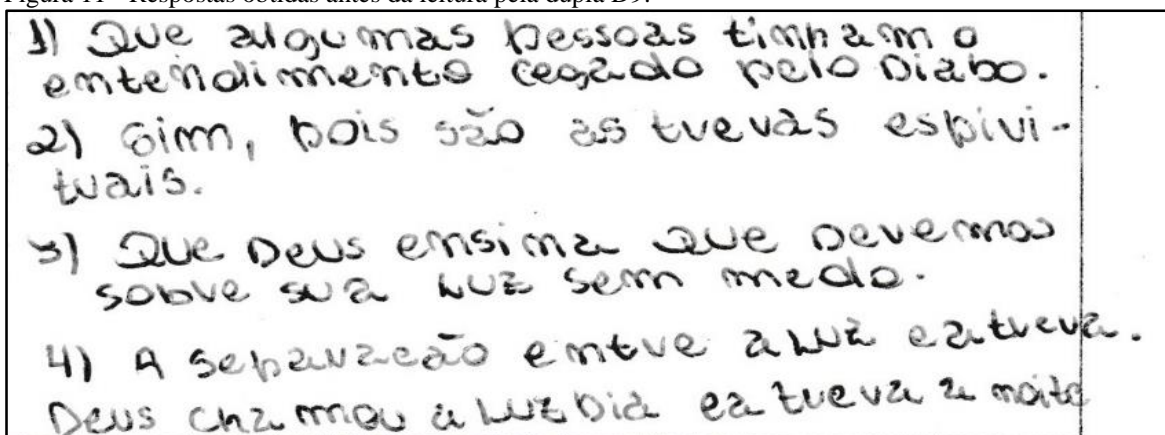 Figura 11 – Respostas obtidas antes da leitura pela dupla D9.
1) Que algumas pessoas tinham o
entendimento cegado pelo Diabo.
2) Sim, pois são as trevas espiri-
tuais.
3) Que Deus ensina que Devemos
sobre sua Luz sem medo.
4) A separação entre a Luz e a treva.
Deus chamou a Luz Dia e a treva a noite